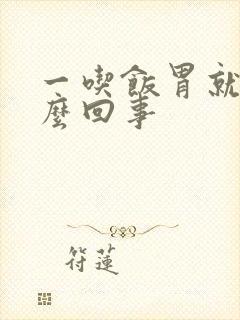 一喫飯胃就
麼回事
符蓮